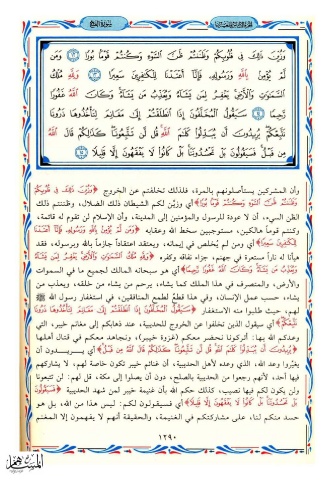 سورة الفتح
وَزُيِّنَ ذَٰلِكَ فِي قُلُوبِكُمْ وَظَنَنتُمْ ظَنَّ السَّوْءِ وَكُنتُمْ قَوْمًا بُورًا ﴿١٢﴾ وَمَن
لَّمْ يُؤْمِن بِاللَّهِ وَرَسُولِهِ فَإِنَّا أَعْتَدْنَا لِلْكَافِرِينَ سَعِيرًا ﴿١٣﴾ وَلِلَّهِ مُلْكُ
السَّمَاوَاتِ وَالْأَرْضِ يَغْفِرُ لِمَن يَشَاءُ وَيُعَذِّبُ مَن يَشَاءُ وَكَانَ اللَّهُ غَفُورًا
رَّحِيمًا ﴿١٤﴾ سَيَقُولُ الْمُخَلَّفُونَ إِذَا انطَلَقْتُمْ إِلَىٰ مَغَانِمَ لِتَأْخُذُوهَا ذَرُونَا
نَتَّبِعْكُمْ يُرِيدُونَ أَن يُبَدِّلُوا كَلَامَ اللَّهِ قُل لَّن تَتَّبِعُونَا كَذَٰلِكُمْ قَالَ اللَّهُ
مِن قَبْلُ فَسَيَقُولُونَ بَلْ تَحْسُدُونَنَا بَلْ كَانُوا لَا يَفْقَهُونَ إِلَّا قَلِيلًا ﴿١٥﴾
وأن المشركين يستأصلونهم بالمرة، فلذلك تخلفتم عن الخروج ﴿وَزُيِّنَ ذَٰلِكَ فِي قُلُوبِكُمْ
وَظَنَنتُمْ ظَنَّ السَّوْءِ وَكُنتُمْ قَوْمًا بُورًا﴾ أي وزيِّن لكم الشيطان ذلك الضلال، وظننتم ذلك
الظن السيء، أن لا عودة للرسول والمؤمنين إلى المدينة، وأن الإسلام لن تقوم له قائمة،
وكنتم قوماً هالكين، مستوجبين سخط الله وعقابه ﴿وَمَن لَّمْ يُؤْمِن بِاللَّهِ وَرَسُولِهِ فَإِنَّا أَعْتَدْنَا
لِلْكَافِرِينَ سَعِيرًا﴾ أي ومن لم يُخلص في إيمانه، ويعتقد اعتقاداً جازماً بالله وبرسوله، فقد
هيأنا له ناراً مستعرة في جهنم، جزاء نفاقه وكفره ﴿وَلِلَّهِ مُلْكُ السَّمَاوَاتِ وَالْأَرْضِ يَغْفِرُ لِمَن يَشَاءُ
وَيُعَذِّبُ مَن يَشَاءُ وَكَانَ اللَّهُ غَفُورًا رَّحِيمًا﴾ أي هو سبحانه المالك لجميع ما في السموات
والأرض، والمتصرف في هذا الملك كما يشاء، يرحم من يشاء من خلقه، ويعذب من
يشاء، حسب عمل الإنسان، وفي هذا قطعٌ لطمع المنافقين، في استغفار رسول الله ﷺ
لهم، حيث طلبوا منه الاستغفار ﴿سَيَقُولُ الْمُخَلَّفُونَ إِذَا انطَلَقْتُمْ إِلَىٰ مَغَانِمَ لِتَأْخُذُوهَا ذَرُونَا
نَتَّبِعْكُمْ﴾ أي سيقول الذين تخلفوا عن الخروج للحديبية، عند ذهابكم إلى مغانم خيبر، التي
وعدكم الله بها: اتركونا نحضر معكم (غزوة خيبر)، ونجاهد معكم في قتال أهلها
﴿يُرِيدُونَ أَن يُبَدِّلُوا كَلَامَ اللَّهِ قُل لَّن تَتَّبِعُونَا كَذَٰلِكُمْ قَالَ اللَّهُ مِن قَبْلُ﴾ أي يـــريـــدون أن
يغيّروا وعد الله، الذي وعده لأهل الحديبية، أن غنائم خيبر تكون خاصة لهم، لا يشاركهم
فيها أحد، لأنهم رجعوا من الحديبية بالصلح، دون أن يصلوا إلى مكة، قل لهم: لن تتبعونا
ولن يكون لكم فيها نصيب، كذلك حكم الله بأن غنيمة خيبر لمن شهد الحديبية ﴿فَسَيَقُولُونَ
بَلْ تَحْسُدُونَنَا بَلْ كَانُوا لَا يَفْقَهُونَ إِلَّا قَلِيلًا﴾ أي فسيقولون لكم: ليس هذا من الله، بل هو
حسد منكم لنا، على مشاركتكم في الغنيمة، والحقيقة أنهم لا يفهمون إلا المغنم
١٢٩٠